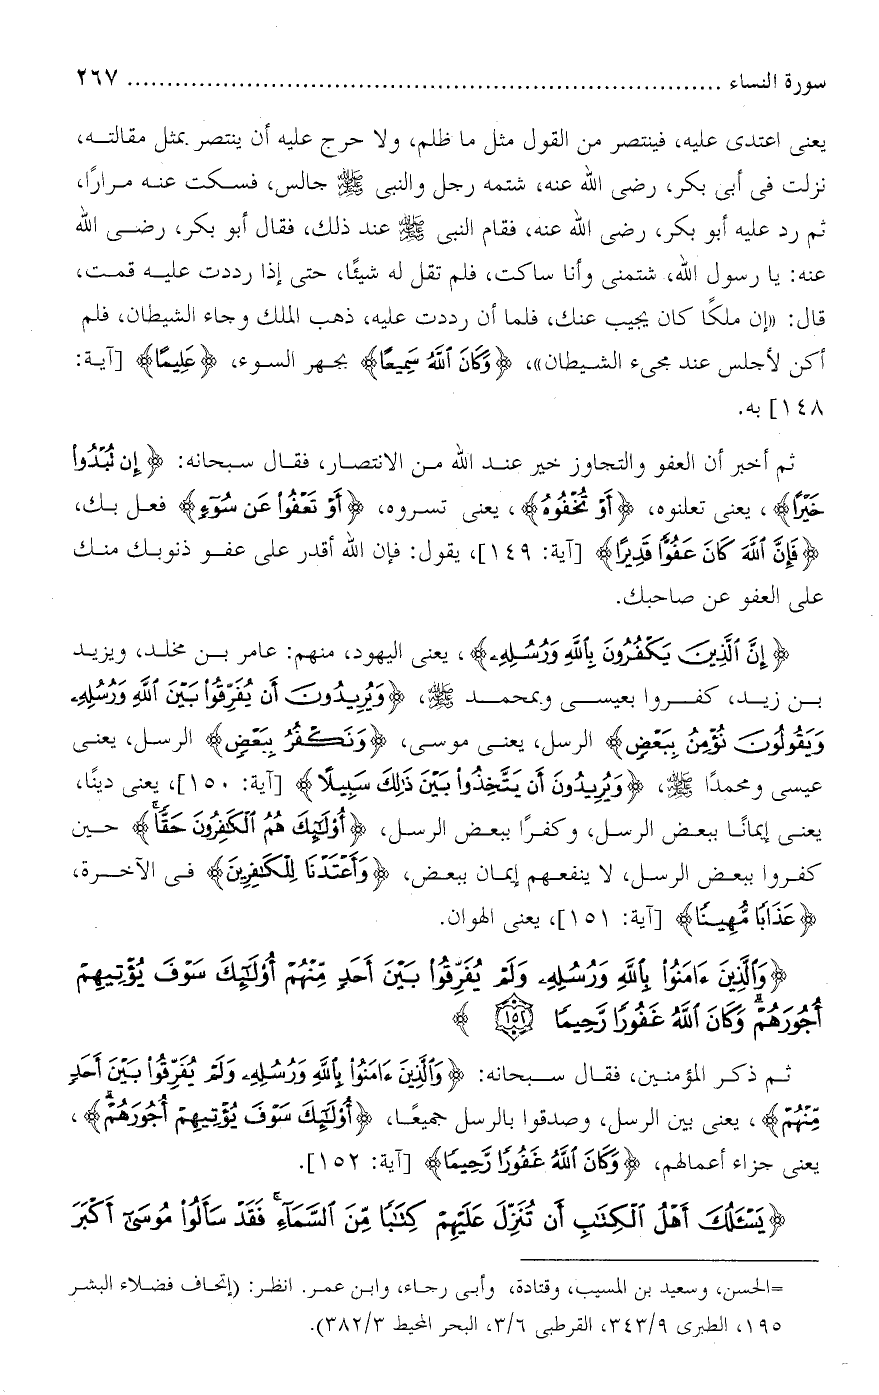 سورة النساء ........................................................................ ٢٦٧
يعنى اعتدى عليه، فينتصر من القول مثل ما ظلم، ولا حرج عليه أن ينتصر بمثل مقالته،
نزلت فى أبى بكر، رضى الله عنه، شتمه رجل والنبى ﷺ جالس، فسكت عنه مرارًا،
ثم رد عليه أبو بكر، رضى الله عنه، فقام النبى ﷺ عند ذلك، فقال أبو بكر، رضى الله
عنه: يا رسول الله، شتمنى وأنا ساكت، فلم تقل له شيئًا، حتى إذا رددت عليه قمت،
قال: «إن ملكًا كان يجيب عنك، فلما أن رددت عليه، ذهب الملك وجاء الشيطان، فلم
أكن لأجلس عند مجىء الشيطان»، ﴿وَكَانَ ٱللَّهُ سَمِيعًا﴾ بجهر السوء، ﴿عَلِيمًا﴾ [آية:
١٤٨] به.
ثم أخبر أن العفو والتجاوز خير عند الله من الانتصار، فقال سبحانه: ﴿إِن تُبْدُوا۟
خَيْرًا﴾، يعنى تعلنوه، ﴿أَوْ تُخْفُوهُ﴾، يعنى تسروه، ﴿أَوْ تَعْفُوا۟ عَن سُوٓءٍ﴾ فعل بك،
﴿فَإِنَّ ٱللَّهَ كَانَ عَفُوًّا قَدِيرًا﴾ [آية: ١٤٩]، يقول: فإن الله أقدر على عفو ذنوبك منك
على العفو عن صاحبك.
﴿إِنَّ ٱلَّذِينَ يَكْفُرُونَ بِٱللَّهِ وَرُسُلِهِۦ﴾، يعنى اليهود، منهم: عامر بن مخلد، ويزيد
بن زيد، كفروا بعيسى وبمحمد ﷺ، ﴿وَيُرِيدُونَ أَن يُفَرِّقُوا۟ بَيْنَ ٱللَّهِ وَرُسُلِهِۦ
وَيَقُولُونَ نُؤْمِنُ بِبَعْضٍ﴾ الرسل، يعنى موسى، ﴿وَنَكْفُرُ بِبَعْضٍ﴾ الرسل، يعنى
عيسى ومحمدًا ﷺ، ﴿وَيُرِيدُونَ أَن يَتَّخِذُوا۟ بَيْنَ ذَٰلِكَ سَبِيلًا﴾ [آية: ١٥٠]، يعنى دينًا،
يعنى إيمانًا ببعض الرسل، وكفرًا ببعض الرسل، ﴿أُو۟لَـٰٓئِكَ هُمُ ٱلْكَـٰفِرُونَ حَقًّا ۚ﴾ حين
كفروا ببعض الرسل، لا ينفعهم إيمان ببعض، ﴿وَأَعْتَدْنَا لِلْكَـٰفِرِينَ﴾ فى الآخرة،
﴿عَذَابًا مُّهِينًا﴾ [آية: ١٥١]، يعنى الهوان.
﴿وَٱلَّذِينَ ءَامَنُوا۟ بِٱللَّهِ وَرُسُلِهِۦ وَلَمْ يُفَرِّقُوا۟ بَيْنَ أَحَدٍ مِّنْهُمْ أُو۟لَـٰٓئِكَ سَوْفَ يُؤْتِيهِمْ
أُجُورَهُمْ ۗ وَكَانَ ٱللَّهُ غَفُورًا رَّحِيمًا ١٥٢ ﴾
ثم ذكر المؤمنين، فقال سبحانه: ﴿وَٱلَّذِينَ ءَامَنُوا۟ بِٱللَّهِ وَرُسُلِهِۦ وَلَمْ يُفَرِّقُوا۟ بَيْنَ أَحَدٍ
مِّنْهُمْ﴾، يعنى بين الرسل، وصدقوا بالرسل جميعًا، ﴿أُو۟لَـٰٓئِكَ سَوْفَ يُؤْتِيهِمْ أُجُورَهُمْ ۗ﴾،
يعنى جزاء أعمالهم، ﴿وَكَانَ ٱللَّهُ غَفُورًا رَّحِيمًا﴾ [آية: ١٥٢].
﴿يَسْـَٔلُكَ أَهْلُ ٱلْكِتَـٰبِ أَن تُنَزِّلَ عَلَيْهِمْ كِتَـٰبًا مِّنَ ٱلسَّمَآءِ ۚ فَقَدْ سَأَلُوا۟ مُوسَىٰٓ أَكْبَرَ
=الحسن، وسعيد بن المسيب، وقتادة، وأبى رجاء، وابن عمر. انظر: (إتحاف فضلاء البشر
١٩٥، الطبرى ٣٤٣/٩، القرطبى ٣/٦، البحر المحيط ٣٨٢/٣).